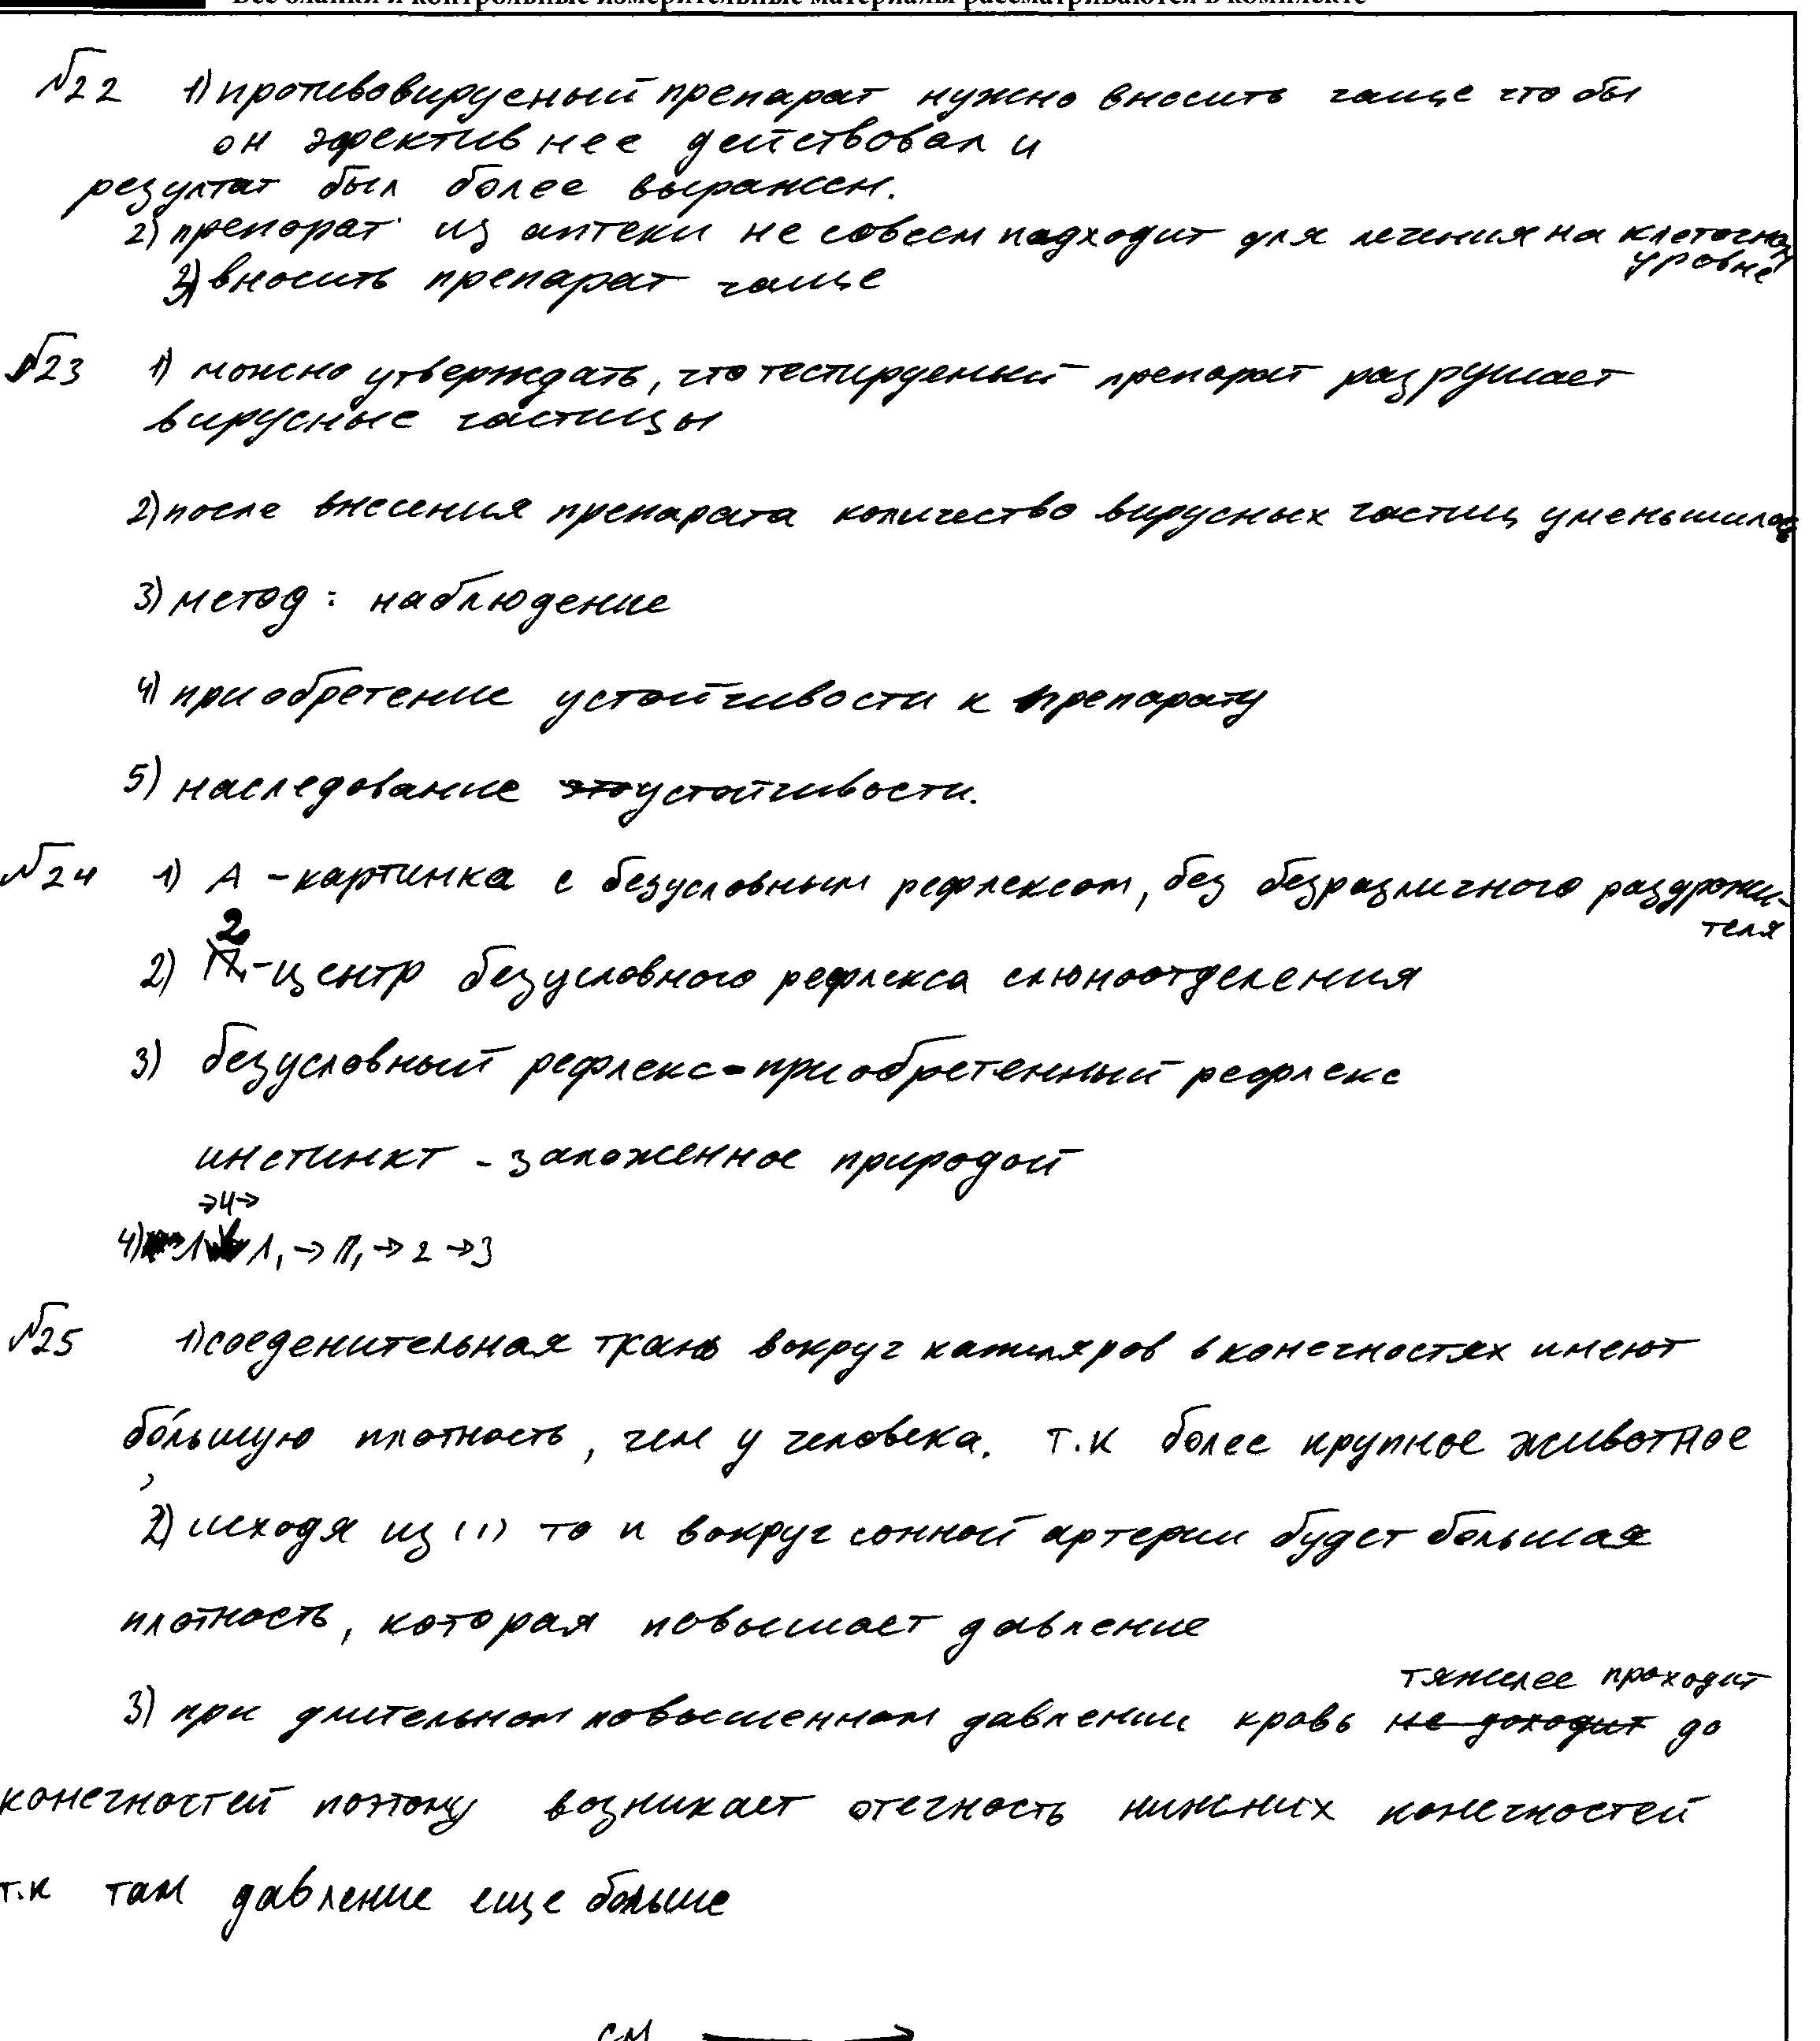 Все бланки и контрольные измерительные материалы рассматриваются в комплекте
№22 1) противовирусный препарат нужно вносить чаще что бы
он эфективнее действовал и
результат был более выражен.
2) препорат из аптеки не совсем падходит для лечения на клеточном
уровне
3) вносить препарат чаще
№23 1) можно утверждать, что тестируемый препарат разрушает
вирусные частицы
2) после внесения препарата количество вирусных частиц уменьшилось
3) метод: наблюдение
4) приобретение устойчивости к препарату
5) наследование устойчивости.
№24 1) А - картинка с безусловным рефлексом, без безразличного раздражи-
теля
2) 2 - центр безусловного рефлекса слюноотделения
3) безусловный рефлекс - приобретенный рефлекс
инстинкт - заложенное природой
→4→
4) 1 1, → П, → 2 → 3
№25 1) соеденительная ткань вокруг капиляров в конечностях имеют
бо́льшую плотность, чем у человека. т.к более крупное животное
2) исходя из (1) то и вокруг сонной артерии будет большая
плотность, которая повышает давление
3) при длительном повышенном давлении кровь не доходит до
тяжелее проходит
конечностей поэтому возникает отечность нижних конечностей
т.к там давление еще больше
см →